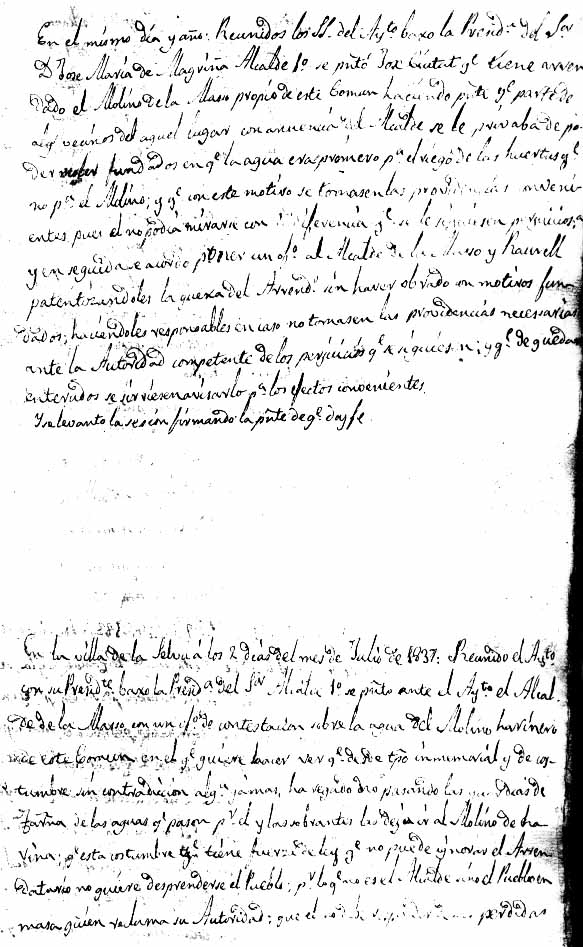 En el mismo dia y año: Reunidos los SS. del Ayto baxo la Presida del Sor
D. Jose Maria de Magriña Alcalde 1o se pntó Jox Ciutat qe tiene arren
dado el Molino de la Maso propio de este Comun haciendo pnte qe parte de
algs vecinos del aquel lugar con anuencia del Alcalde se le privaba de po
der moler fundados en qe la agua era primero pa el riego de las huertas qe
no pa el Molino; y qe con este motivo se tomasen las providencias conveni
entes pues el no podia mirarse con indiferencia qe se le siguiesen perjuicios,
y en seguida se acordó poner un ofo al Alcalde de la Maso y Raurell
patentizandoles la quexa del Arrendo sin haver obrado con motivos fun
dados; haciendoles responsables en caso no tomasen las providencias necessarias
ante la Autoridad competente de los perjuicios qe se siguiesen; y qe de quedar
enterados se sirviesen avisarlo pa los efectos convenientes.
Y se levanto la sesion firmando la pnte de qe doy fe.
En la villa de la Selva á los 2 dias del mes de Julio de 1837: Reunido el Ayto
con su Presidte baxo la Presida del Sor Alcalde 1o se pntó ante el Ayto el Alcal
de de la Maso, con un ofo de contestacion sobre la agua del Molino harinero
de este Comun en el qe quiere hacer ver qe desde tpo inmemorial y de cos-
tumbre sin contradicion alga jamas, ha regado dho pasando las dias de
tarna de las aguas qe pasan pr el y las sobrantes las dejá ir al Molino de ha
rina; qe esta costumbre qe tiene fuerza de ley qe no puede ynorar el Arren
datario no quiere desprenderse el Pueblo; pr lo qe no es el Alcalde sino el Pueblo en
masa quien reclama su Autoridad; que el perdidas